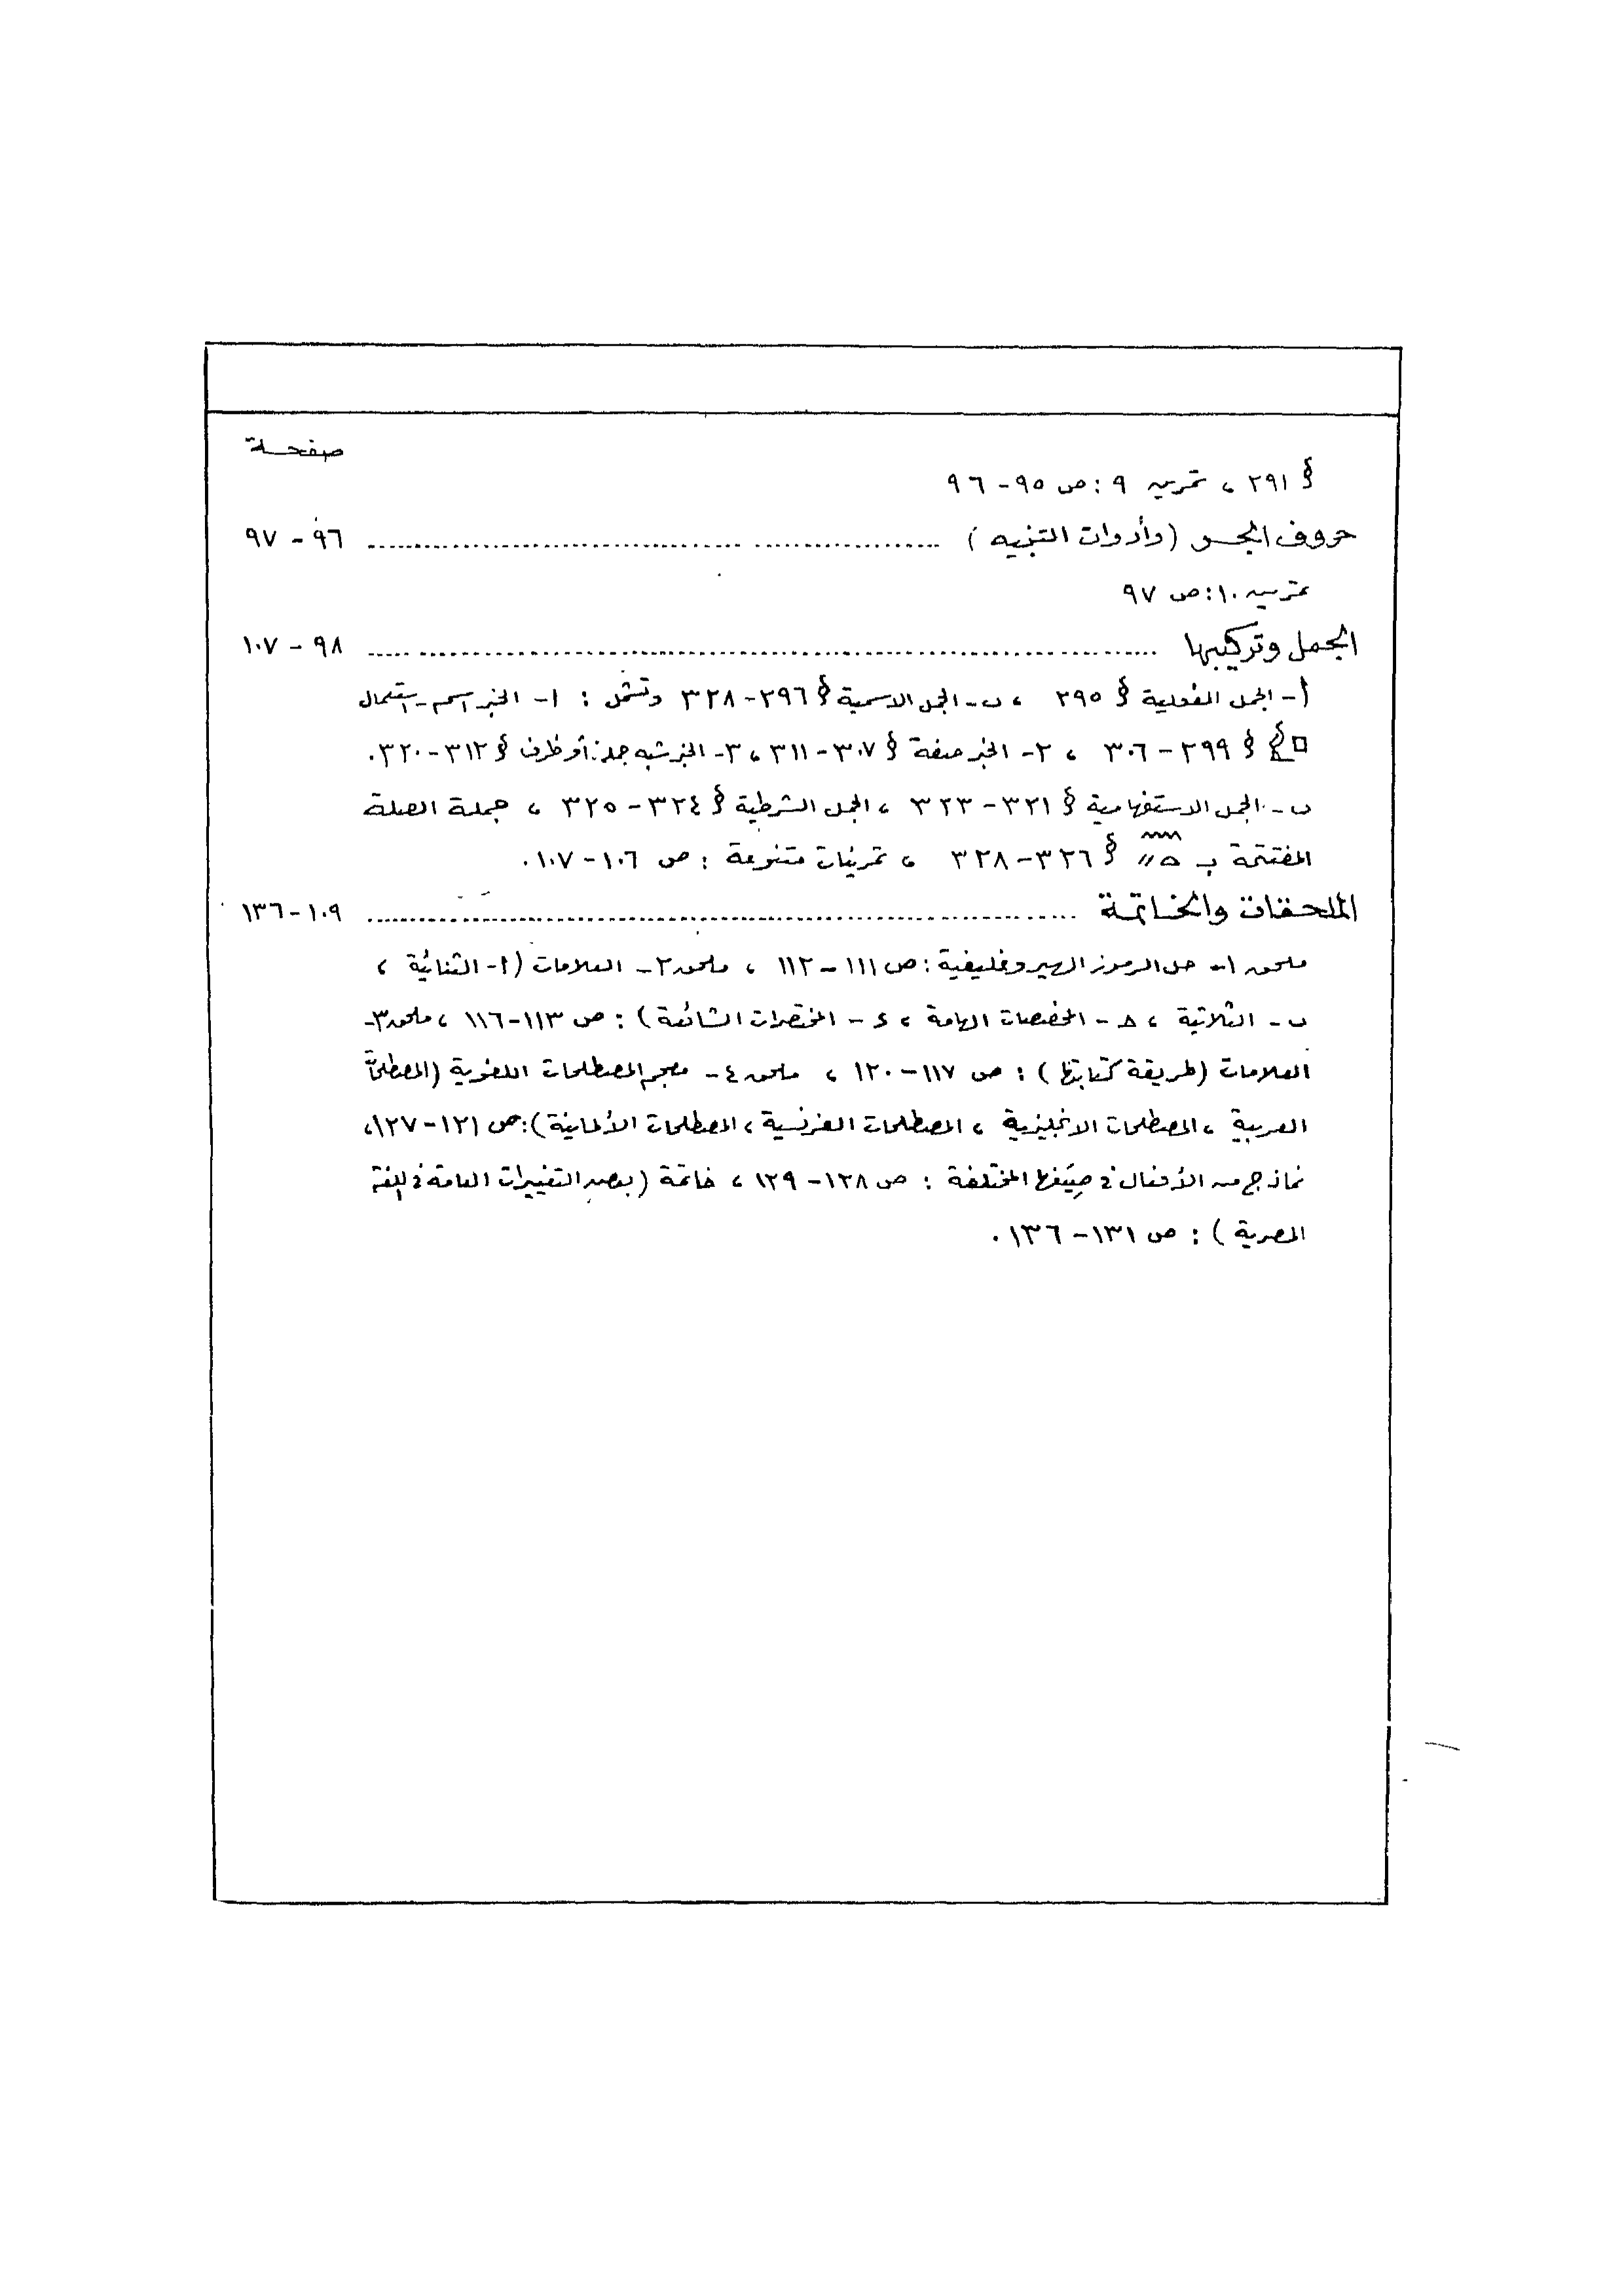 صفحة
§ ٢٩١ ، تمرين ٩ : ص ٩٥ - ٩٦
حروف الجر (وأدوات التنبيه) .......... ٩٦ - ٩٧
تمرين ١٠ : ص ٩٧
الجمل وتركيبها .......... ٩٨ - ١٠٧
أ - الجمل الفعلية § ٢٩٥ ، ب - الجمل الاسمية § ٢٩٦ - ٣٢٨ وتشمل : ١ - الخبر اسم - استعمال
§ ٢٩٩ - ٣٠٦ ، ٢ - الخبر صفة § ٣٠٧ - ٣١١ ، ٣ - الخبر شبه جملة أو ظرف § ٣١٢ - ٣٢٠ .
ب - الجمل الاستفهامية § ٣٢١ - ٣٢٣ ، الجمل الشرطية § ٣٢٤ - ٣٢٥ ، جملة الصلة
المفتتحة بـ § ٣٢٦ - ٣٢٨ ، تمرينات متنوعة : ص ١٠٦ - ١٠٧ .
الملحقات والخاتمة .......... ١٠٩ - ١٣٦
ملحق ١ - حل الرموز الهيروغليفية : ص ١١١ - ١١٢ ، ملحق ٢ - العلامات (أ - الثنائية ،
ب - الثلاثية ، ح - المخصصات الهامة ، د - المختصرات الشائعة) : ص ١١٣ - ١١٦ ، ملحق ٣ -
العلامات (طريقة كتابتها) : ص ١١٧ - ١٢٠ ، ملحق ٤ - معجم المصطلحات اللغوية (المصطلحات
العربية ، المصطلحات الانجليزية ، المصطلحات الفرنسية ، المصطلحات الألمانية) : ص ١٢١ - ١٢٧ ،
نماذج من الأفعال في صيَغها المختلفة : ص ١٢٨ - ١٢٩ ، خاتمة (بعض التغييرات العامة في اللغة
المصرية) : ص ١٣١ - ١٣٦ .